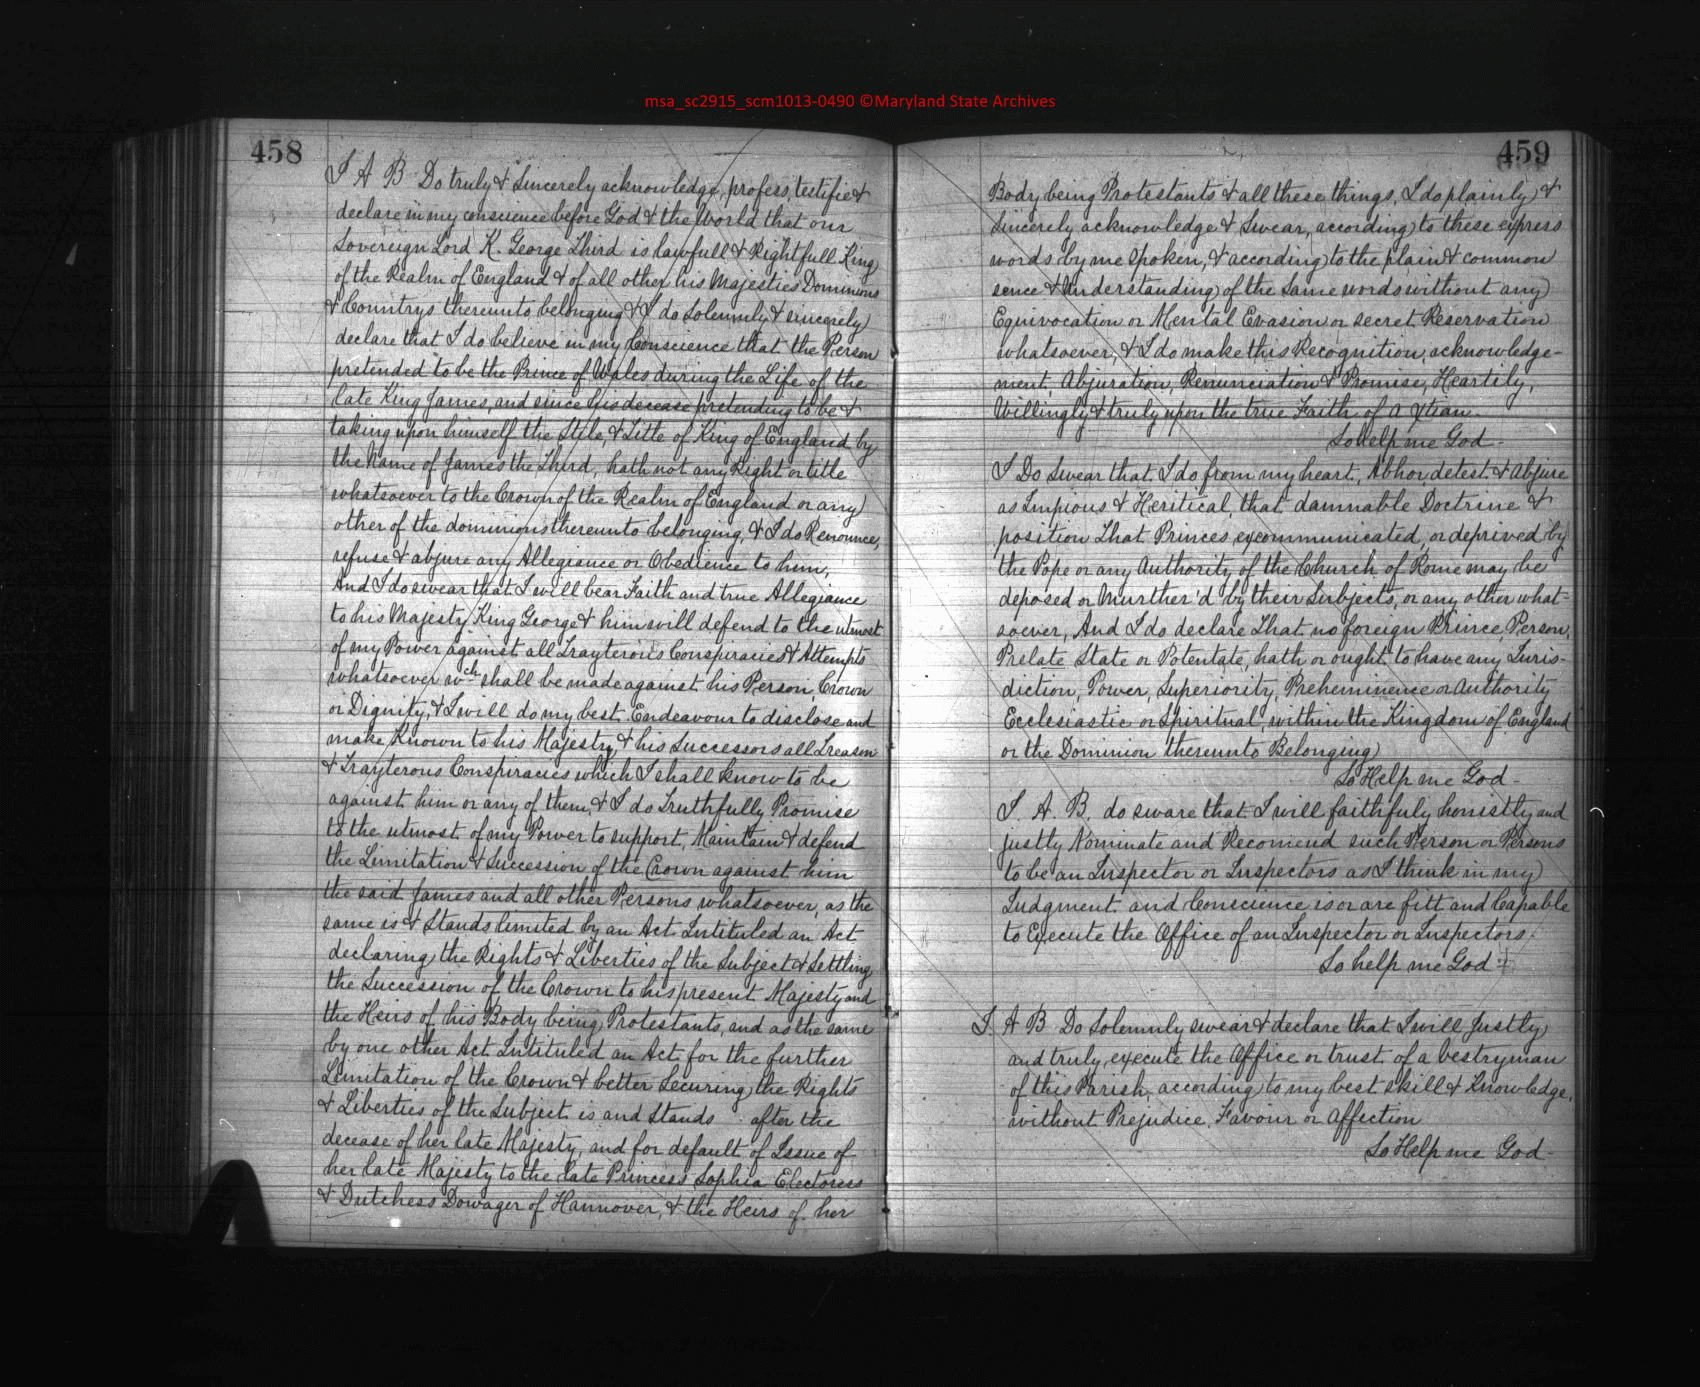 msa_sc2915_scm1013-0490 ©Maryland State Archives
458
I A B Do truly & Sincerely acknowledge, profess, testifie &
declare in my conscience before God & the World that our
Sovereign Lord K. George Third is lawfull & Rightfull King
of the Realm of England & of all other his Majesties Dominions
& Countrys thereunto belonging & I do Solemnly & sincerely
declare that I do believe in my Conscience that the Person
pretended to be the Prince of Wales during the Life of the
late King James, and since his decease pretending to be &
taking upon himself the Stile & Title of King of England by
the Name of James the Third, hath not any Right or title
whatsoever to the Crown of the Realm of England or any
other of the dominions thereunto belonging, & I do Renounce,
refuse & abjure any Allegiance or Obedience to him,
And I do swear that I will bear Faith and true Allegiance
to his Majesty King George & him will defend to the utmost
of my Power against all Trayterous Conspiracies & Attempts
whatsoever wch shall be made against his Person, Crown
or Dignity, & I will do my best Endeavour to disclose and
make Known to his Majesty, & his Successors all Treason
& Trayterous Conspiracies which I shall know to be
against him or any of them, & I do Truthfully Promise
to the utmost of my Power to support, Maintain & defend
the Limitation & Succession of the Crown against him
the said James and all other Persons whatsoever, as the
same is & Stands limited by an Act Intituled an Act
declaring the Rights & Liberties of the Subject & Settling
the Succession of the Crown to his present Majesty and
the Heirs of his Body being Protestants, and as the same
by one other Act Intituled an Act for the further
Limitation of the Crown & better Securing the Rights
& Liberties of the Subject is and Stands after the
decease of her late Majesty, and for default of Issue of
her late Majesty to the late Princess Sophia Electoress
& Dutchess Dowager of Hannover, & the Heirs of her
459
Body being Protestants & all these things, I do plainly &
Sincerely acknowledge & Swear, according to these express
words by me Spoken, & according to the plain & common
sence & Understanding of the Same words without any
Equivocation or Mental Evasion or secret Reservation
whatsoever, & I do make this Recognition, acknowledge-
ment, Abjuration, Renunciation & Promise, Heartily,
Willingly & truly upon the true Faith of a Xtian.
So help me God -
I Do Swear that I do from my heart, Abhor, detest & Abjure
as Impious & Heritical, that damnable Doctrine &
position That Princes excommunicated, or deprived by
the Pope or any Authority of the Church of Rome may be
deposed or Murther'd by their Subjects, or any other what-
soever, And I do declare That no foreign Prince, Person,
Prelate State or Potentate, hath or ought to have any Juris-
diction, Power, Superiority, Preheminence or Authority
Ecclesiastic or Spiritual, within the Kingdom of England
or the Dominion thereunto Belonging
So Help me God -
I. A. B. do sware that I will faithfuly honistly and
justly Nominate and Recomend such Person or Persons
to be an Inspector or Inspectors as I think in my
Judgment and Conscience is or are fitt and Capable
to Execute the Office of an Inspector or Inspectors.
So help me God
I. A B Do Solemnly swear & declare that I will Justly
and truly execute the Office or trust of a bestryman
of this Parish, according to my best skill & Knowledge,
without Prejudice, Favour or Affection
So Help me God -